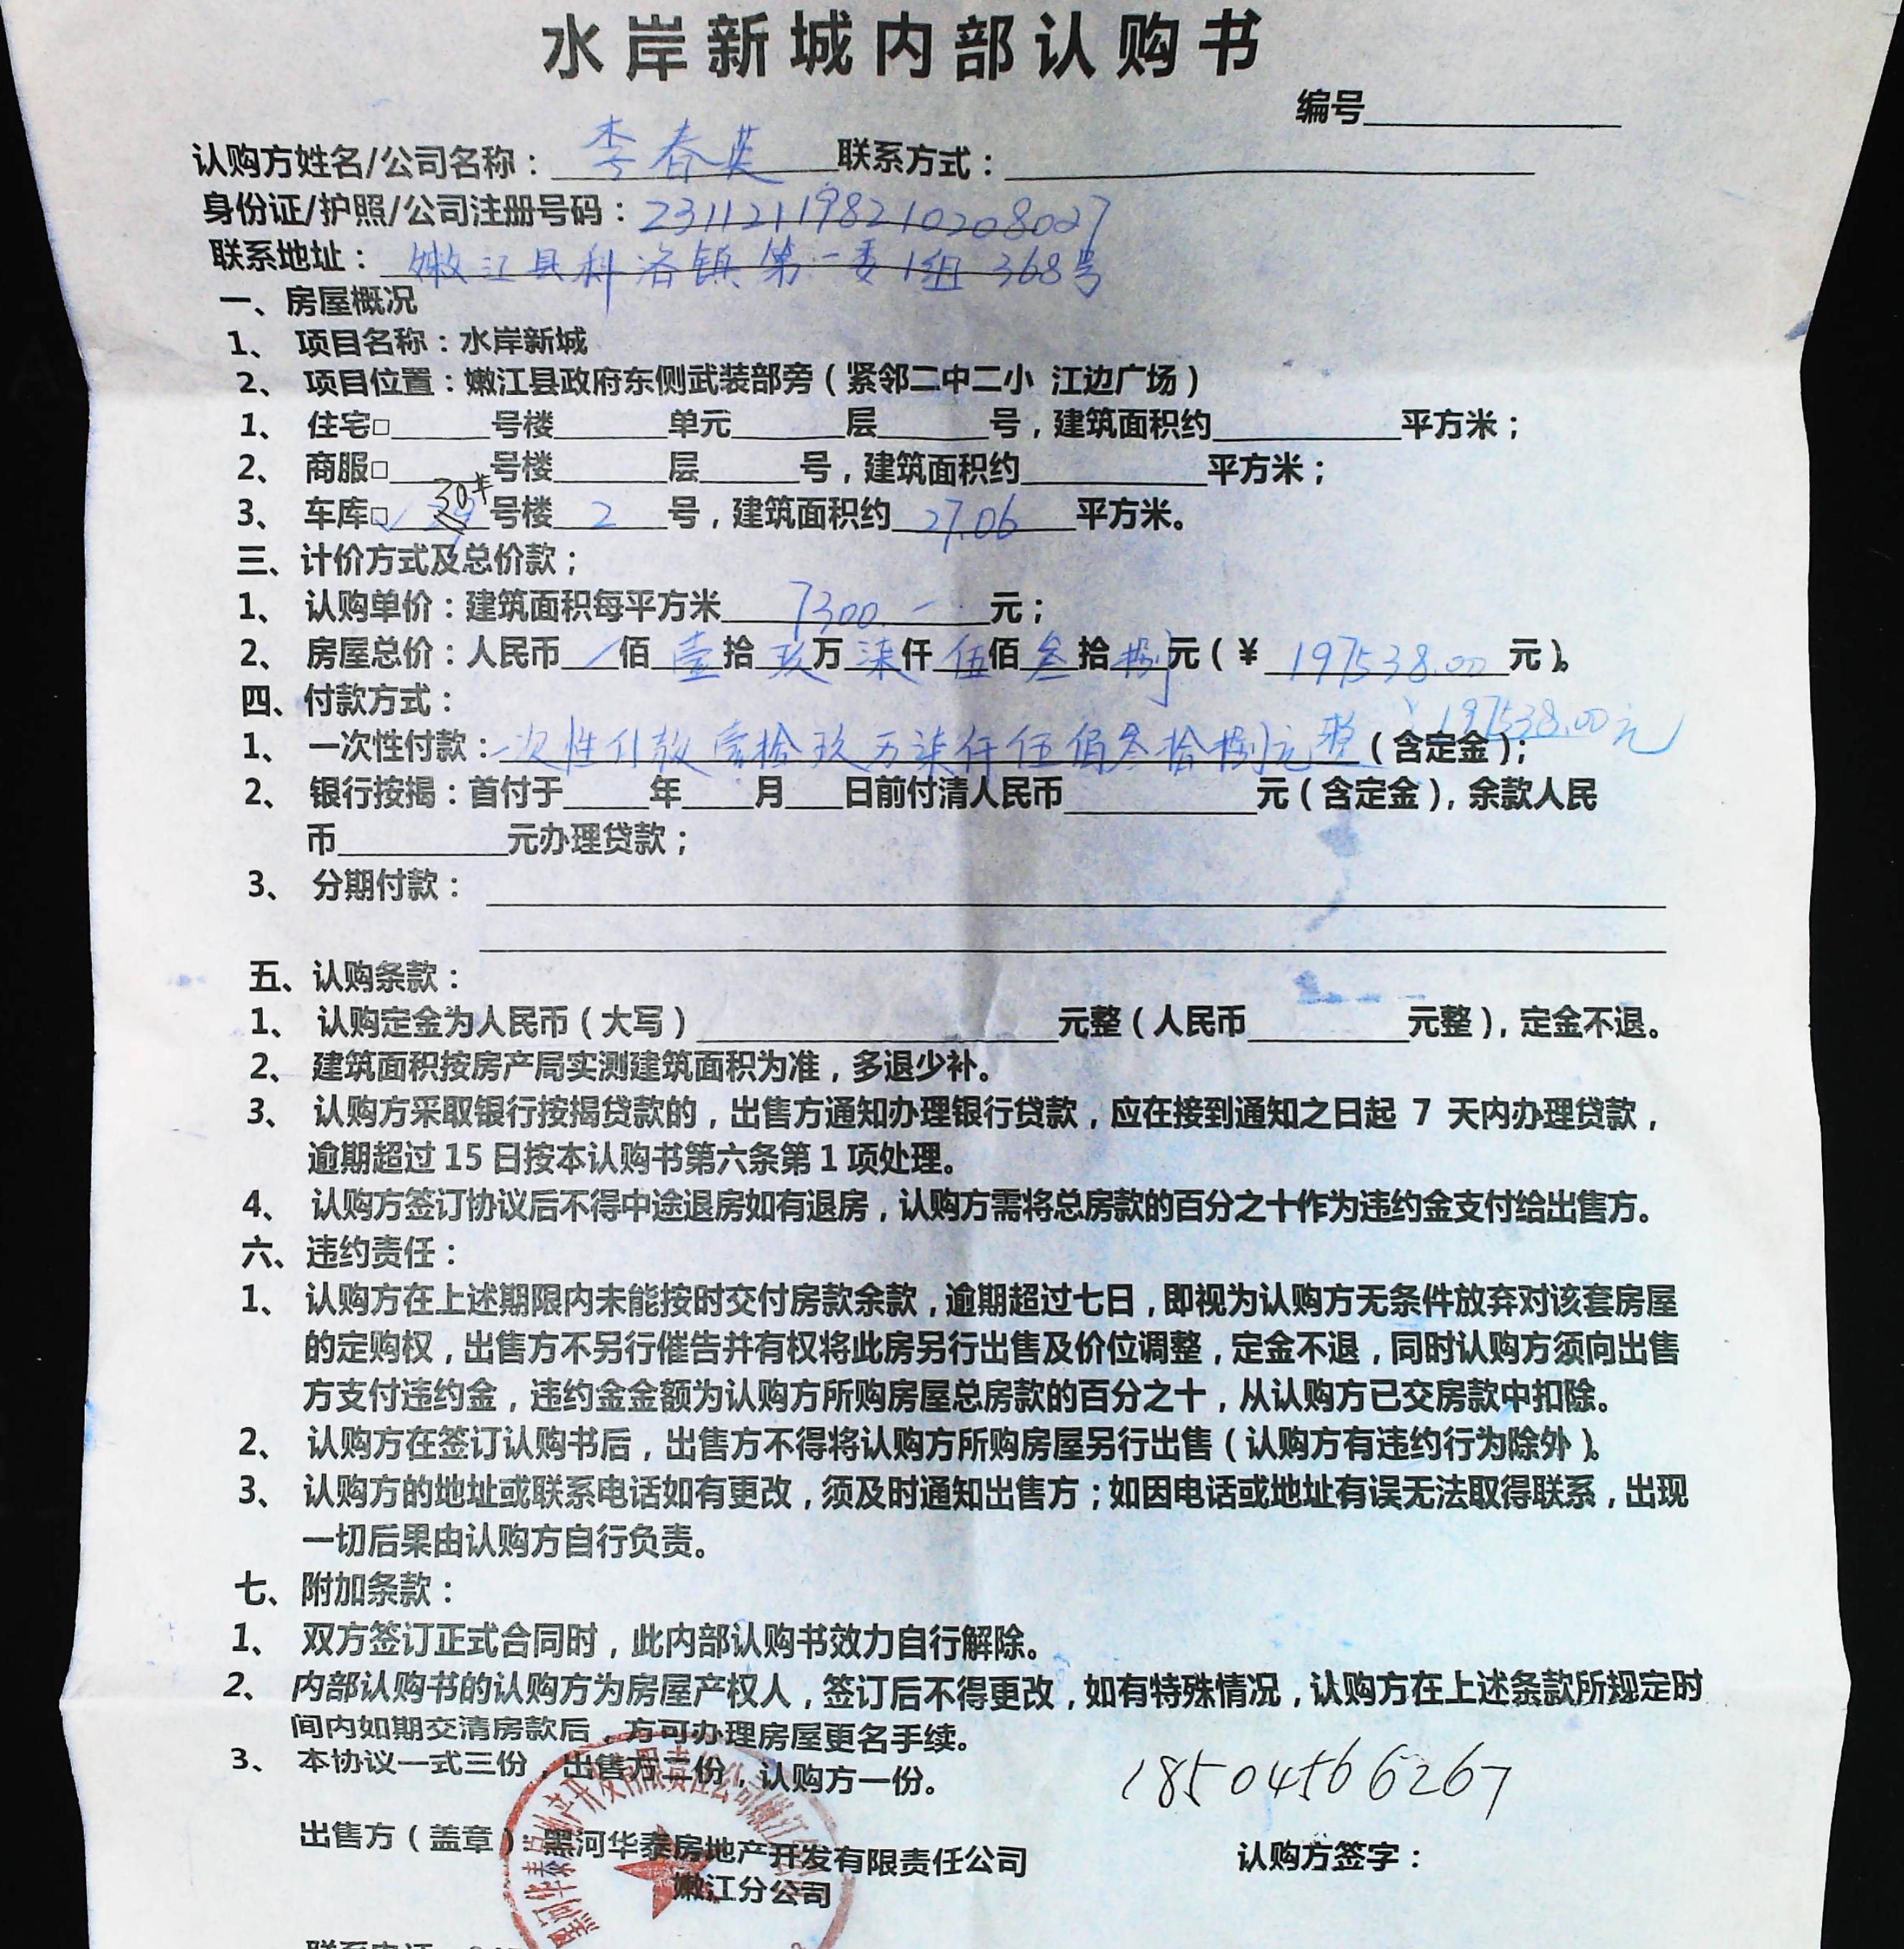 水岸新城内部认购书
编号
认购方姓名/公司名称：李春英 联系方式：
身份证/护照/公司注册号码：231121198210208027
联系地址：嫩江县科洛镇第一委1组368号
一、房屋概况
1、 项目名称：水岸新城
2、 项目位置：嫩江县政府东侧武装部旁（紧邻二中二小 江边广场）
1、 住宅□______号楼______单元______层______号，建筑面积约__________平方米；
2、 商服□______号楼______层______号，建筑面积约__________平方米；
3、 车库□✓ 30# 号楼 2 号，建筑面积约 27.06 平方米。
三、计价方式及总价款；
1、 认购单价：建筑面积每平方米 7300.— 元；
2、 房屋总价：人民币 / 佰 壹 拾 玖 万 柒 仟 伍 佰 叁 拾 捌 元（¥ 197538.00 元）。
四、付款方式：
1、 一次性付款：一次性付款壹拾玖万柒仟伍佰叁拾捌元整（含定金）； ¥197538.00元
2、 银行按揭：首付于_____年____月___日前付清人民币__________元（含定金），余款人民
币__________元办理贷款；
3、 分期付款：
五、认购条款：
1、 认购定金为人民币（大写）____________________元整（人民币_________元整），定金不退。
2、 建筑面积按房产局实测建筑面积为准，多退少补。
3、 认购方采取银行按揭贷款的，出售方通知办理银行贷款，应在接到通知之日起 7 天内办理贷款，
逾期超过 15 日按本认购书第六条第 1 项处理。
4、 认购方签订协议后不得中途退房如有退房，认购方需将总房款的百分之十作为违约金支付给出售方。
六、违约责任：
1、 认购方在上述期限内未能按时交付房款余款，逾期超过七日，即视为认购方无条件放弃对该套房屋
的定购权，出售方不另行催告并有权将此房另行出售及价位调整，定金不退，同时认购方须向出售
方支付违约金，违约金金额为认购方所购房屋总房款的百分之十，从认购方已交房款中扣除。
2、 认购方在签订认购书后，出售方不得将认购方所购房屋另行出售（认购方有违约行为除外）。
3、 认购方的地址或联系电话如有更改，须及时通知出售方；如因电话或地址有误无法取得联系，出现
一切后果由认购方自行负责。
七、附加条款：
1、 双方签订正式合同时，此内部认购书效力自行解除。
2、 内部认购书的认购方为房屋产权人，签订后不得更改，如有特殊情况，认购方在上述条款所规定时
间内如期交清房款后，方可办理房屋更名手续。
3、 本协议一式三份，出售方二份，认购方一份。
18504566267
出售方（盖章）：黑河华泰房地产开发有限责任公司 认购方签字：
嫩江分公司